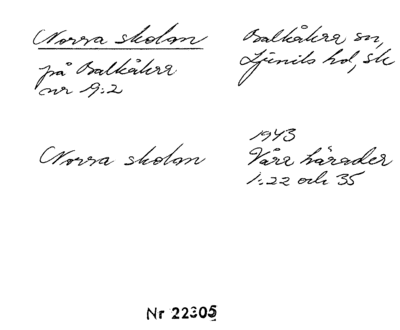 Norra skolan
på Balkåkra
nr 19:2
Balkåkra sn,
Ljunits hd, sk
Norra skolan
1943
Våra härader
1:22 och 35
Nr 22305